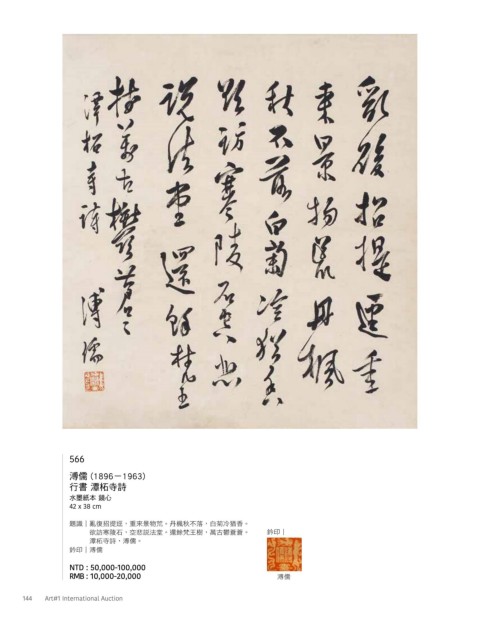 亂後招提𨗿重
來景物荒丹楓
秋不落白菊冷猶香
欲訪寒陵石空悲
說法堂還餘梵王
樹萬古鬱蒼〻
潭柘寺詩 溥儒
566
溥儒 (1896－1963)
行書 潭柘寺詩
水墨紙本 鏡心
42 x 38 cm
題識｜亂後招提逕，重來景物荒。丹楓秋不落，白菊冷猶香。
欲訪寒陵石，空悲說法堂。還餘梵王樹，萬古鬱蒼蒼。
潭柘寺詩，溥儒。
鈐印｜溥儒
鈐印｜
溥儒
NTD : 50,000-100,000
RMB : 10,000-20,000
144 Art#1 International Auction